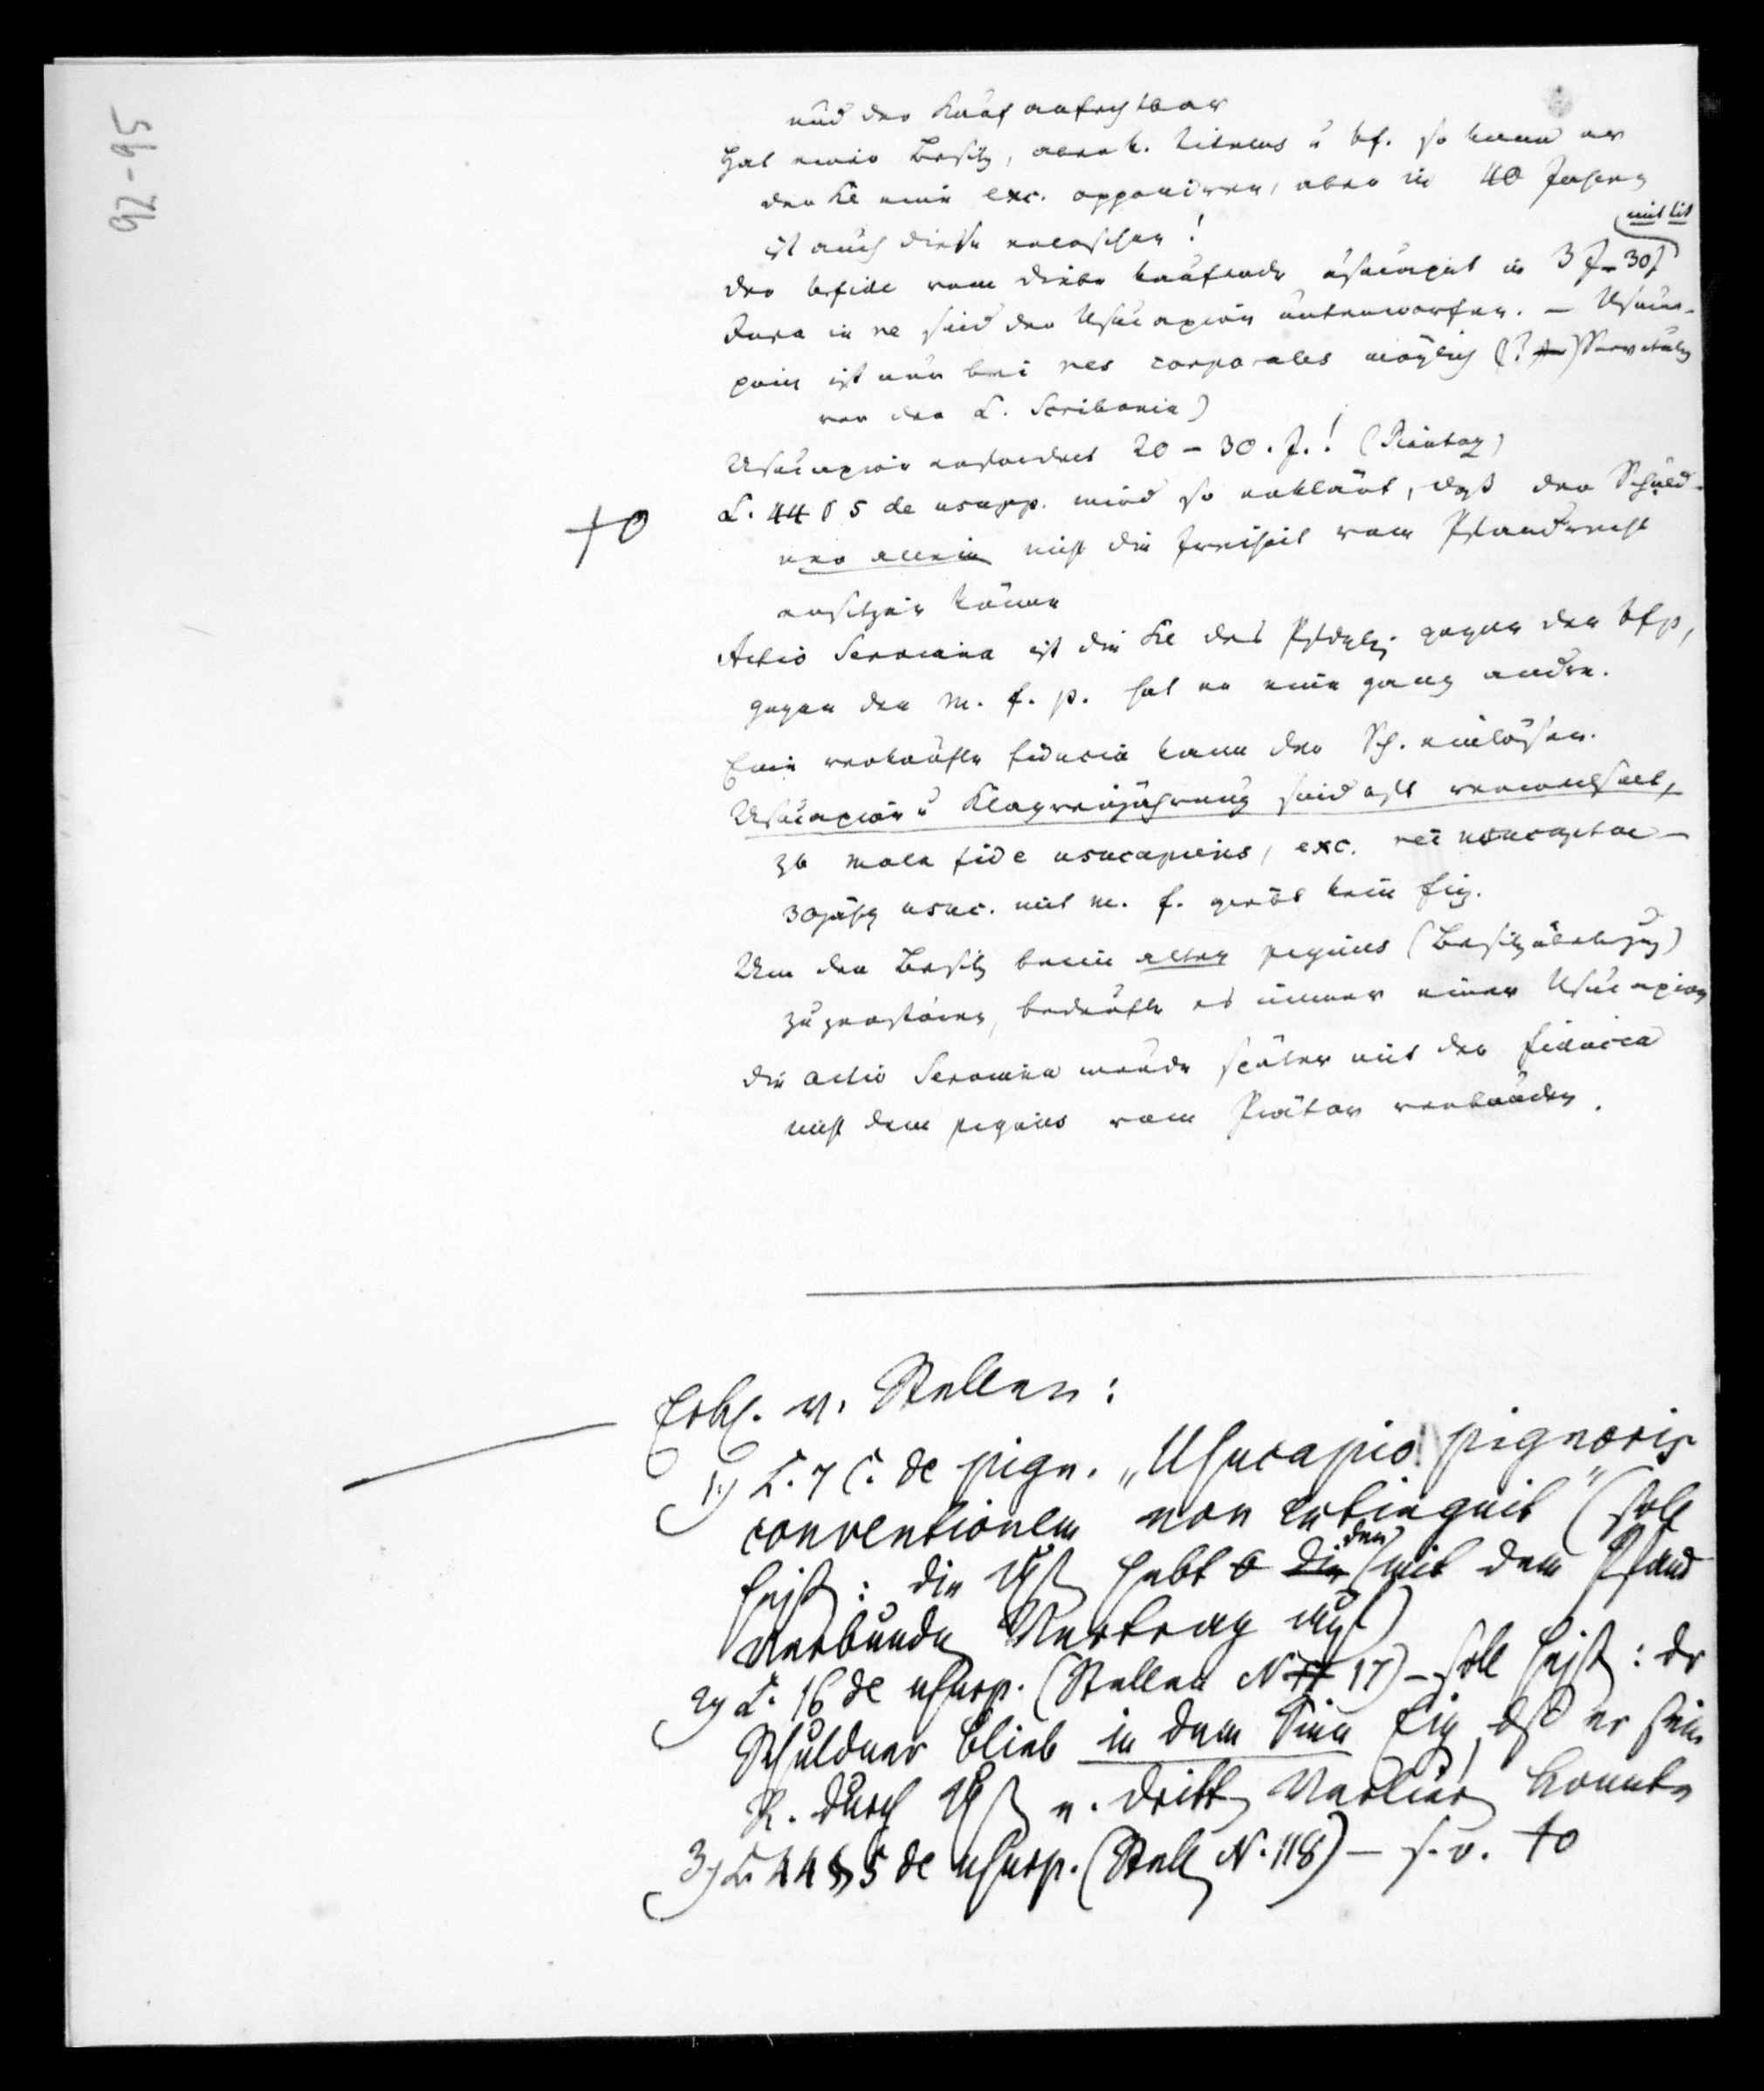 92-95
und der Kauf anfechtbar
Hat einer Besitz, aber k. Titulus u bf. so kann er
der Kl eine exc. opponieren, aber in 40 Jahren
ist auch diese erloschen!
mit tit
der bfide vom Diebe kaufende usucapirt in 3 J - 30 J
Jura in re sind der Usucapion unterworfen. – Usuca-
pion ist nur bei res corporales möglich (? Servituten
vor der L. Scribonia)
Usucapion erfordert 20 – 30. J.! (Puntag)
+0 L. 44 § 5 de usurp. wird so erklärt, daß der Schuld-
ner allein nicht die Freiheit vom Pfandrecht
ersitzen könne
Actio Serviana ist die Kl des Pfdgl. gegen den bfp,
gegen den m. f. p. hat er eine ganz andre.
Eine verkaufte fiducia kann der Sch. einlösen.
Usucapion u Klagverjährung sind oft verwechselt,
zb mala fide usucapiens, exc. rei usucaptae –
30jährg usuc. mit m. f. gibt kein Eig.
Um den Besitz beim alten pignus (Besitzübertrgg)
zu zerstören, bedurfte es immer einer Usucapion
die actio Serviana wurde später mit der fiducia
nicht dem pignus vom Prätor verbunden.
Erkl. v. Stellen:
1.) L. 7 C. de pign. „Usucapio pignoris
conventionem non extinguit" (soll
heißt: die hebt 0 den mit dem Pfand
verbunden Vertrag auf)
2) L. 16 de usurp. (Stellen N 17) – soll heißt: dr
Schuldner blieb in dem Sinn Eig, dß er sein
R. durch v. dritt verlier konnte
3) L. 44 § 5 de usurp. (Stell N. 118) – s. o. +0